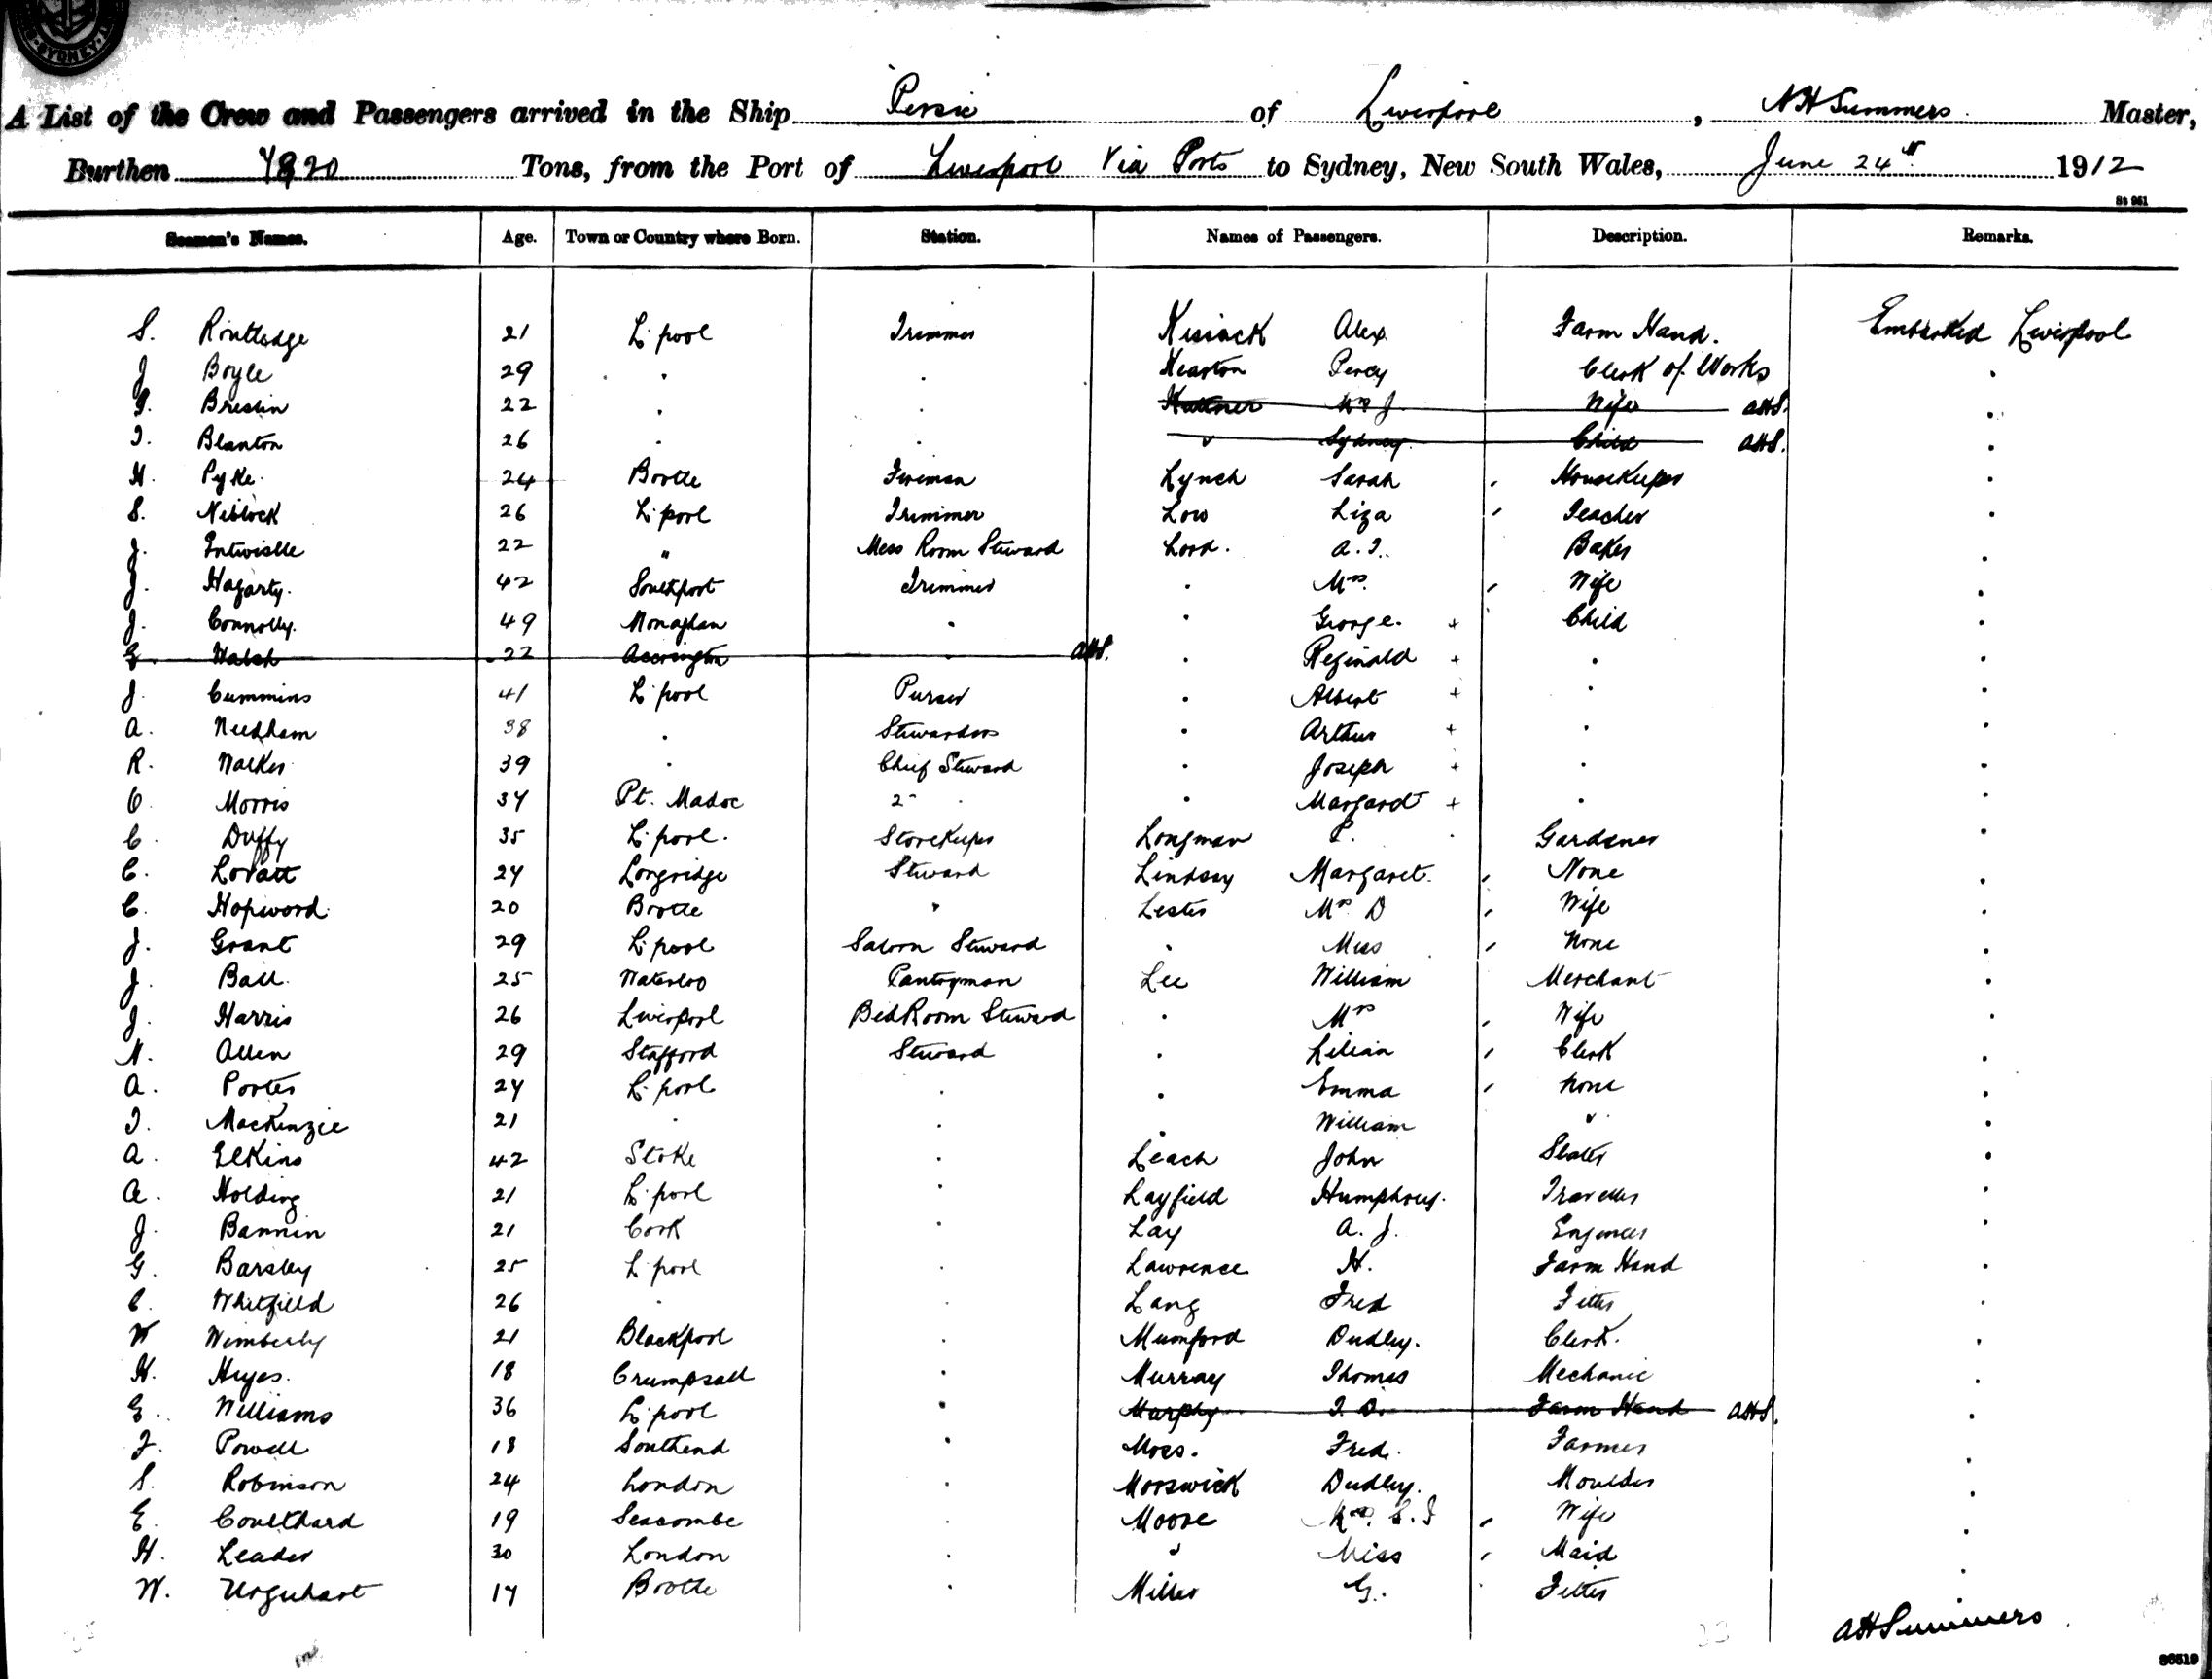 SYDNEY
A List of the Crew and Passengers arrived in the Ship Persic of Liverpool, AHSummers Master,
Burthen 7820 Tons, from the Port of Liverpool Via Ports to Sydney, New South Wales, June 24th 1912
Ss 961
Seamen's Names. Age. Town or Country where Born. Station. Names of Passengers. Description. Remarks.
S. Routledge 21 L'pool Trimmer Kissack Alex Farm Hand. Embarked Liverpool
J Boyle 29 . . Kearton Percy Clerk of Works .
Breslin 22 . . Huttner Mrs J Wife AHS. .
T. Blanton 26 . . " Sydney Child AHS. .
H. Pyke. 24 Bootle Fireman Lynch Sarah Housekeeper .
S. Niblock 26 L'pool Trimmer Low Liza Teacher .
J. Entwistle 22 " Mess Room Steward Lord. A.T. Baker .
J. Hagarty. 42 Southport Trimmer . Mrs. Wife .
J. Connolly. 49 Monaghan . . George. + Child .
Walsh 22 Accrington . AHS. . Reginald + . .
J. Cummins 41 L'pool Purser . Albert + . .
A. Needham 38 . Stewardess . Arthur + . .
R. Walker 39 . Chief Steward . Joseph + . .
O. Morris 37 Pt. Madoc 2" . . Margaret + . .
C. Duffy 35 L'pool. Storekeeper Longman P. Gardener .
C. Lovatt 27 Longridge Steward Lindsay Margaret. None .
C. Hopwood 20 Bootle " Lester Mrs D Wife .
J. Grant 29 L'pool Saloon Steward . Miss None .
J. Ball. 25 Waterloo Pantryman Lee William Merchant .
J. Harris 26 Liverpool BedRoom Steward . Mrs Wife .
N. Allen 29 Stafford Steward . Lilian Clerk .
A. Porter 27 L'pool . . Emma None .
T. MacKenzie 21 . . . William " .
A. Elkins 42 Stoke . Leach John Slater .
A. Holding 21 L'pool . Layfield Humphrey. Traveller .
J. Bannin 21 Cork . Lay A. J. Engineer .
G. Barsley 25 L'pool . Lawrence H. Farm Hand .
C. Whitfield 26 . . Lang Fred Fitter .
W Wimberly 21 Blackpool . Mumford Dudley. Clerk. .
H. Heyes. 18 Crumpsall . Murray Thomas Mechanic .
E. Williams 36 L'pool . Murphy T. D. Farm Hand AHS. .
F. Powell 18 Southend . Moss. Fred. Farmer .
S. Robinson 24 London . Morswick Dudley. Moulder .
E. Coulthard 19 Seacombe . Moore Mrs. Wife .
H. Leader 30 London . " Miss Maid .
W. Urquhart 17 Bootle . Miller G. Fitter .
AHSummers
86519